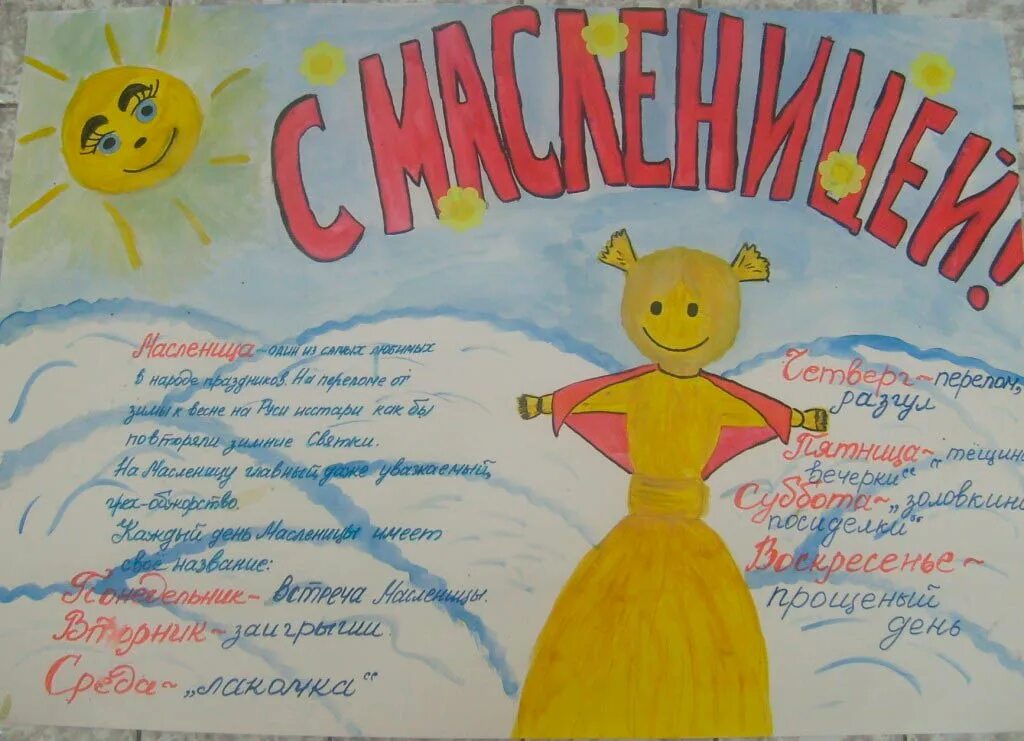 С МАСЛЕНИЦЕЙ!
Масленица - один из самых любимых
в народе праздников. На переломе от
зимы к весне на Руси исстари как бы
повторяли зимние Святки.
На Масленицу главный даже уважаемый,
грех - обжорство.
Каждый день Масленицы имеет
своё название:
Понедельник - Встреча Масленицы.
Вторник - заигрыши.
Среда - „лакомка“
Четверг - перелом,
разгул
Пятница - „тёщины
вечерки“
Суббота - „золовкины
посиделки“
Воскресенье -
прощеный
день